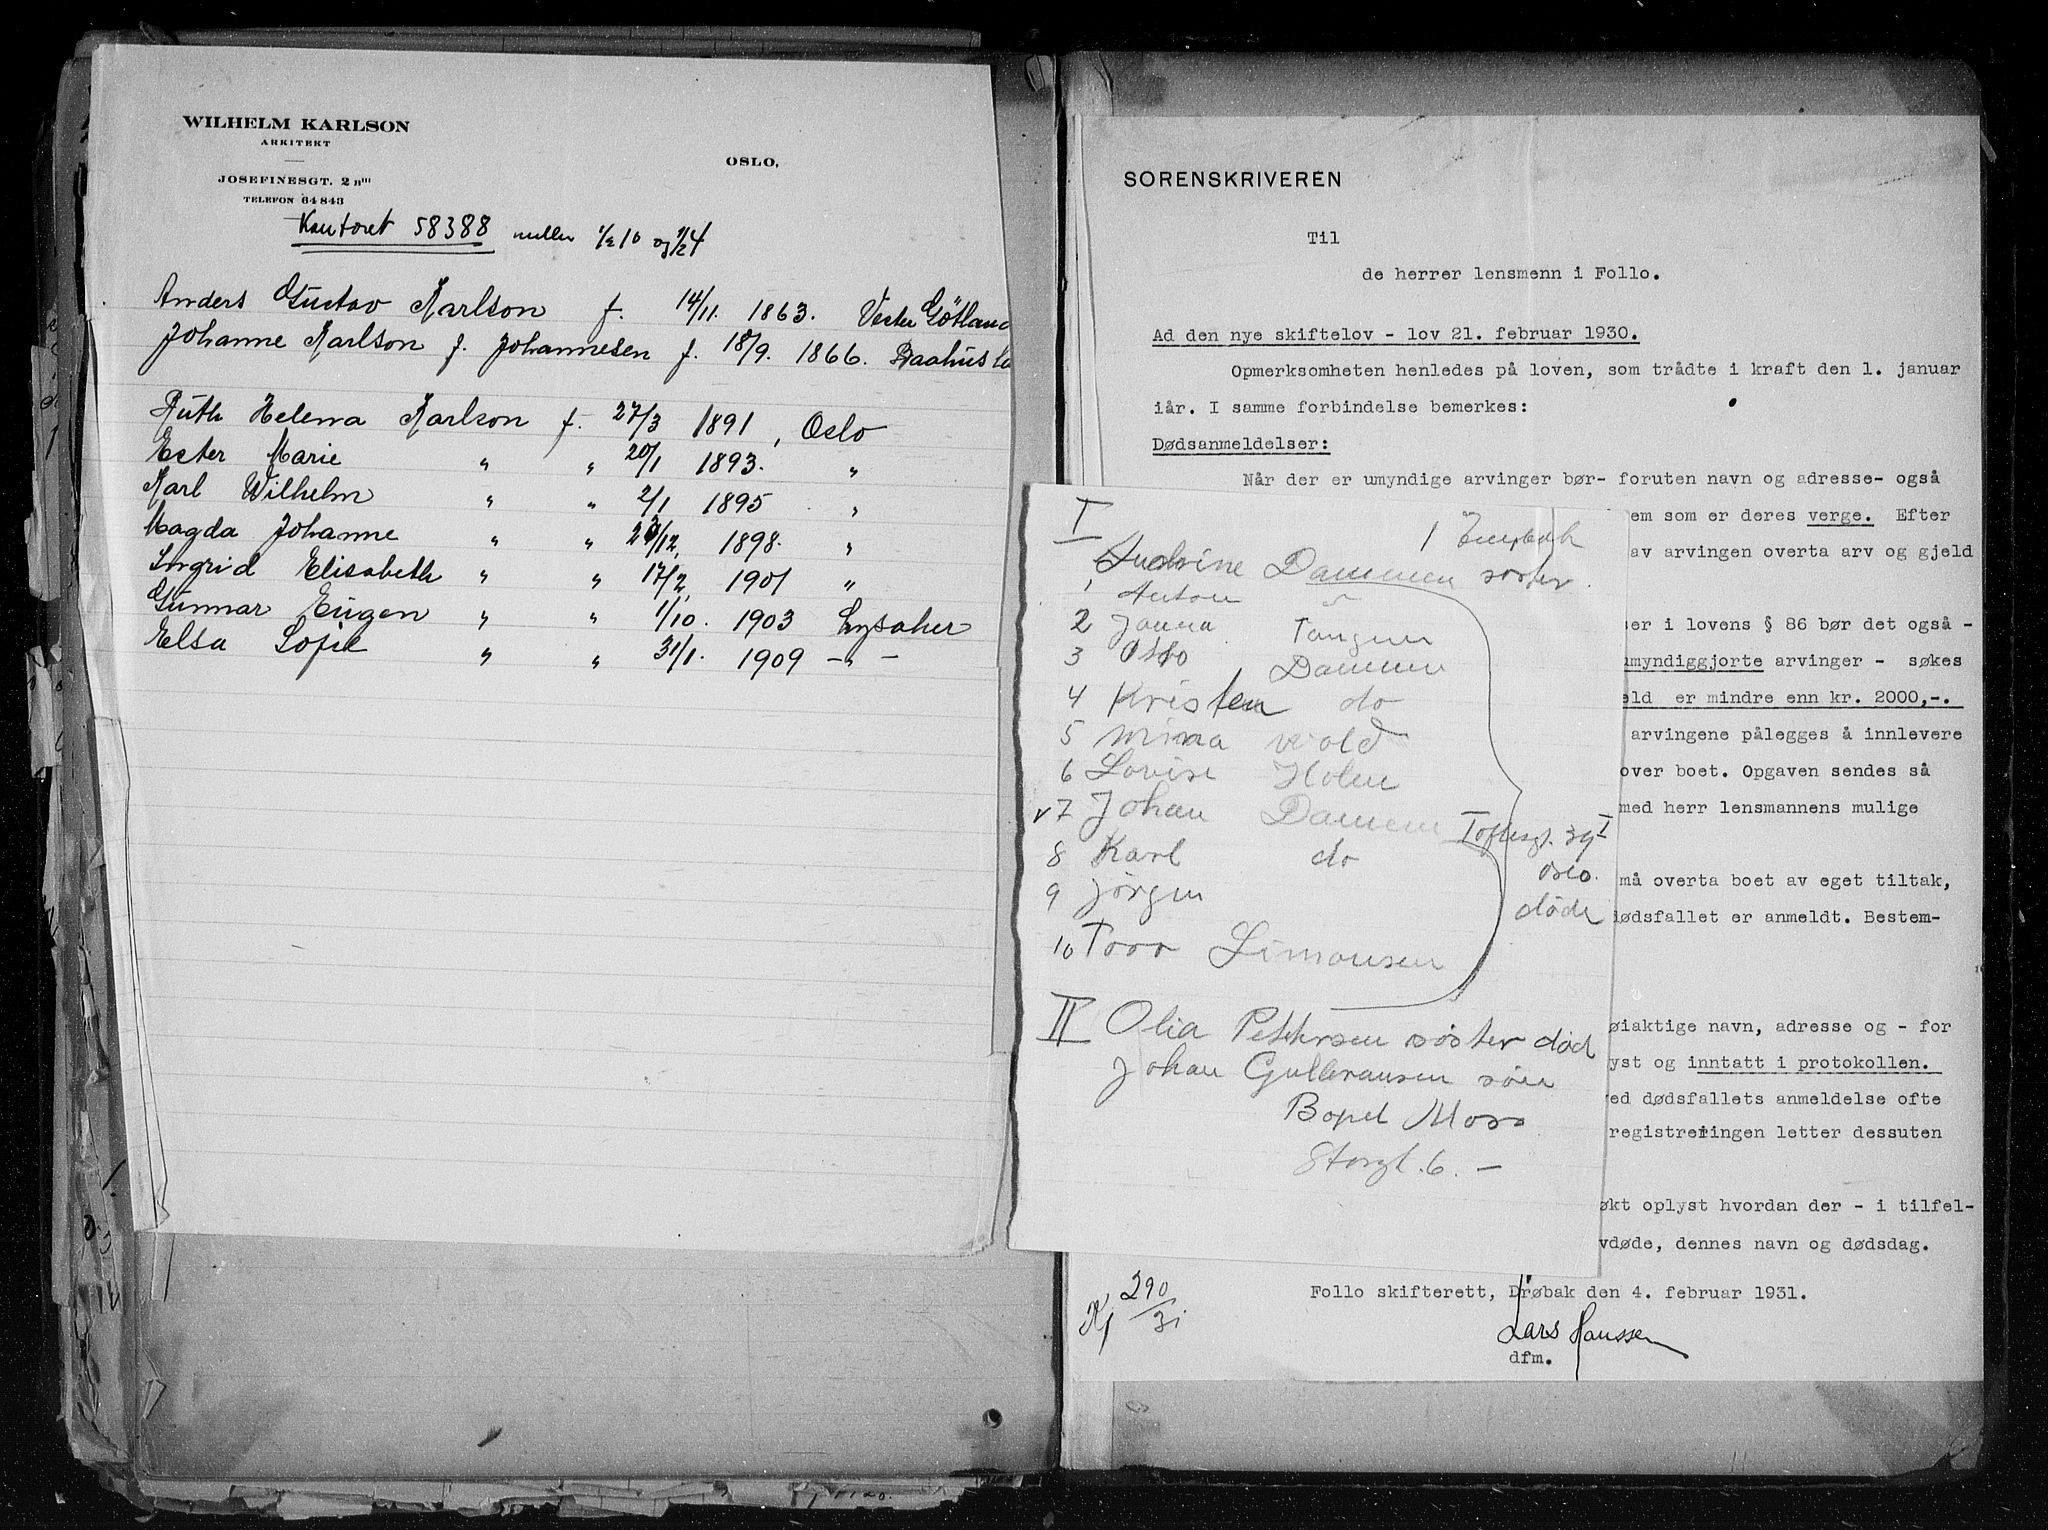 WILHELM KARLSON
ARKITEKT
OSLO,
JOSEFINESGT. 2 B III
TELEFON 64843
Kontoret 58388 mellem 1/2 10 og 1/2 4
Anders Gustav Karlson f. 14/11. 1863. Vester Götland
Johanne Karlson f. Johannesen f. 18/9. 1866. Baahus
Ruth Helena Karlson f. 27/3 1891, Oslo
Ester Marie " " 20/1 1893. "
Karl Wilhelm " " 2/1 1895 "
Magda Johanne " " /12, 1898. "
Ingrid Elisabeth " " 17/2, 1901 "
Gunnar Eugen " " 1/10. 1903 Lysaker
Elsa Sofie " " 31/1. 1909 - " -
SORENSKRIVEREN
Til
de herrer lensmenn i Follo.
Ad den nye skiftelov - lov 21. februar 1930.
Opmerksomheten henledes på loven, som trådte i kraft den 1. januar
iår. I samme forbindelse bemerkes:
Dødsanmeldelser:
Når der er umyndige arvinger bør- foruten navn og adresse- også
em som er deres verge. Efter
av arvingen overta arv og gjeld
ser i lovens § 86 bør det også -
umyndiggjorte arvinger - søkes
eld er mindre enn kr. 2000,-.
arvingene pålegges å innlevere
over boet. Opgaven sendes så
med herr lensmannens mulige
må overta boet av eget tiltak,
dødsfallet er anmeldt. Bestem-
øiaktige navn, adresse og - for
yst og inntatt i protokollen.
ved dødsfallets anmeldelse ofte
registreringen letter dessuten
økt oplyst hvordan der - i tilfel-
vdøde, dennes navn og dødsdag.
Follo skifterett, Drøbak den 4. februar 1931.
Lars Hanssen
dfm.
Kj 290/31
I
1
Dammen søster
1 Anton "
2 Janna Tangen
3 Dammen
4 Kristen do
5 Mina Wold
6 Lovise Holen
v 7 Johan Dammen Toftesgt. 39 I
8 Karl do Oslo.
9 Jörgen døde
10 Tora Simonsen
II Olia Pettersen søster død
Johan Gulbransen sön
Bopel Moss
Storgt. 6. -